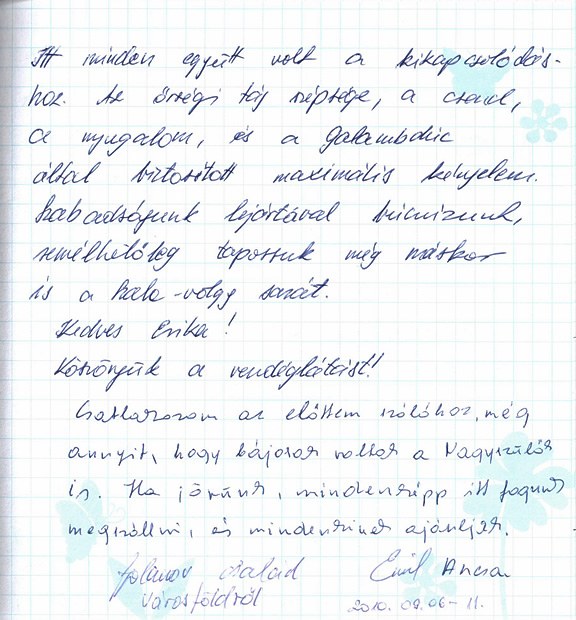 Itt minden együtt volt a kikapcsolódás-
hoz. Az őrségi táj szépsége, a csend,
a nyugalom, és a Galambdúc
által biztosított maximális kényelem.
Szabadságunk lejártával búcsúzunk,
remélhetőleg tapossuk még máskor
is a Zala-völgy sarát.
Kedves Erika!
Köszönjük a vendéglátást!
Csatlakozom az előttem szólóhoz, még
annyit, hogy bájosak voltak a Nagyszülők
is. Ha jövünk, mindenképp itt fogunk
megszállni, és mindenkinek ajánljuk.
család Emil Ancsa
Városföldről 2010. 09. 06-11.